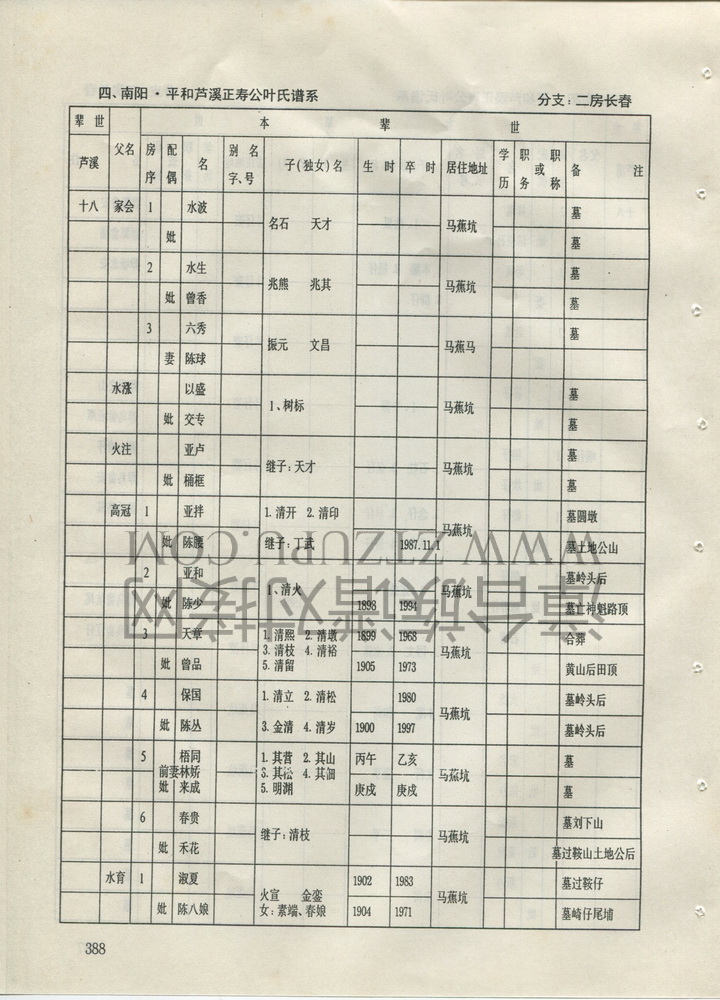 四、南阳·平和芦溪正寿公叶氏谱系 分支：二房长春
辈世 本 辈 世
芦溪 父名 房序 配偶 名 别名字、号 子(独女)名 生时 卒时 居住地址 学历 职务或职称 备注
十八 家会 1 水波 名石 天才 马蕉坑 墓
妣 墓
2 水生 兆熊 兆其 马蕉坑 墓
妣 曾香 墓
3 六秀 振元 文昌 马蕉马 墓
妻 陈球
水涨 以盛 1、树标 马蕉坑 墓
妣 交专 墓
火注 亚卢 继子：天才 马蕉坑 墓
妣 桶框 墓
高冠 1 亚拌 1.清开 2.清印 马蕉坑 墓圆墩
妣 陈腰 继子：丁武 1987.11.1 墓土地公山
2 亚和 1、清火 马蕉坑 墓岭头后
妣 陈少 1898 1994 墓亡神魁路顶
3 天章 1.清熙 2.清墩 1899 1968 马蕉坑 合葬
3.清枝 4.清裕
妣 曾品 5.清留 1905 1973 黄山后田顶
4 保国 1.清立 2.清松 1980 马蕉坑 墓岭头后
妣 陈丛 3.金清 4.清岁 1900 1997 墓岭头后
5 梧同 1.其营 2.其山 丙午 乙亥 马蕉坑 墓
前妻林娇 3.其松 4.其佃
妣 来成 5.明渊 庚戌 庚戌 墓
6 春贵 继子：清枝 马蕉坑 墓刘下山
妣 禾花 墓过鞍山土地公后
水育 1 淑夏 火宣 金銮 1902 1983 马蕉坑 墓过鞍仔
妣 陈八娘 女：素端、春娘 1904 1971 墓崎仔尾埔
388
WWW.ZTZUPU.COM
漳台族谱对接网